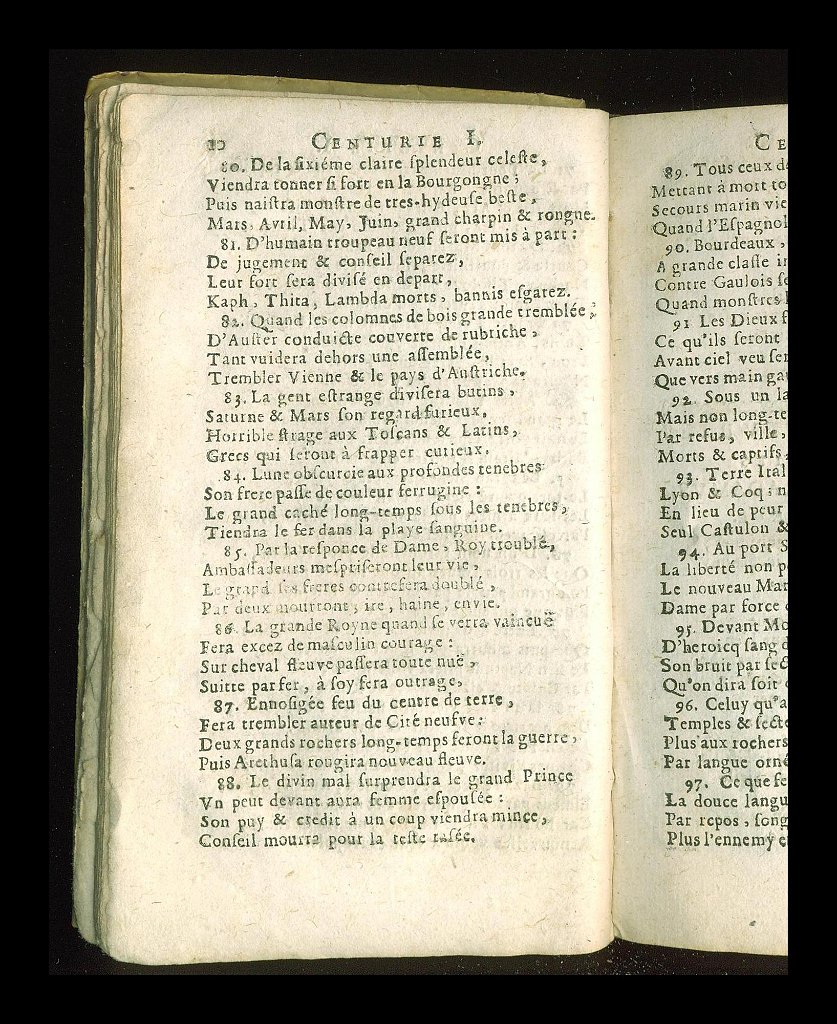 10 CENTURIE I.
80. De la sixiéme claire splendeur celeste,
Viendra tonner si fort en la Bourgongne;
Puis naistra monstre de tres-hydeuse beste,
Mars, Avril, May, Juin, grand charpin & rongne.
81. D'humain troupeau neuf seront mis à part:
De jugement & conseil separez,
Leur fort sera divisé en depart,
Kaph, Thita, Lambda morts, bannis esgarez.
82. Quand les colomnes de bois grande tremblée,
D'Auster conduicte couverte de rubriche,
Tant vuidera dehors une assemblée,
Trembler Vienne & le pays d'Austriche.
83. La gent estrange divisera butins,
Saturne & Mars son regard furieux,
Horrible strage aux Toscans & Latins,
Grecs qui seront à frapper curieux.
84. Lune obscurcie aux profondes tenebres
Son frere passe de couleur ferrugine:
Le grand caché long-temps sous les tenebres,
Tiendra le fer dans la playe sanguine.
85. Par la responce de Dame, Roy troublé,
Ambassadeurs mespriseront leur vie,
Le grand ses freres contrefera doublé,
Par deux mourront, ire, haine, envie.
86. La grande Royne quand se verra vaincuë
Fera excez de masculin courage:
Sur cheval fleuve passera toute nuë,
Suitte par fer, à foy fera outrage,
87. Ennosigée feu du centre de terre,
Fera trembler auteur de Cité neufve:
Deux grands rochers long-temps feront la guerre,
Puis Arethusa rougira nouveau fleuve.
88. Le divin mal surprendra le grand Prince
Vn peut devant aura femme espousée:
Son puy & credit à un coup viendra mince,
Conseil mourra pour la teste rasée.
CE
89. Tous ceux de
Mettant à mort to
Secours marin vie
Quand l'Espagnol
90. Bourdeaux,
A grande classe in
Contre Gaulois se
Quand monstres
91 Les Dieux f
Ce qu'ils feront
Avant ciel veu ser
Que vers main gau
92. Sous un la
Mais non long-te
Par refus, ville,
Morts & captifs,
93. Terre Ital
Lyon & Coq n
En lieu de peur
Seul Castulon &
94. Au port S
La liberté non p
Le nouveau Mar
Dame par force
95. Devant Mo
D'heroicq sang d
Son bruit par sect
Qu'on dira soit
96. Celuy qu'a
Temples & secte
Plus aux rochers
Par langue orné
97. Ce que fe
La douce langu
Par repos, song
Plus l'ennemy e